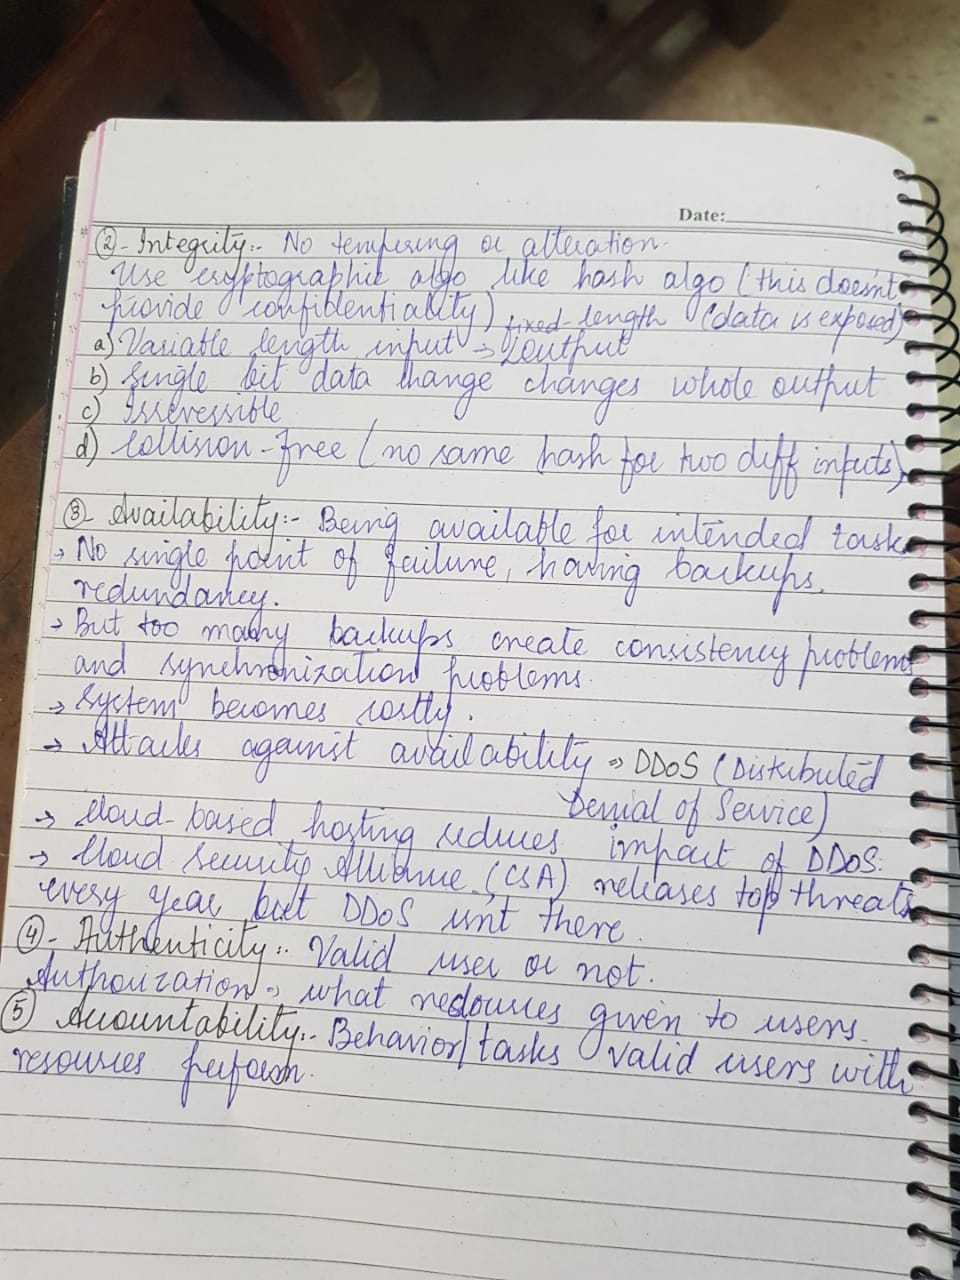 Date:
②- Integrity:- No tempering or alteration.
Use cryptographic algo like hash algo (this doesn't
provide confidentiality) (data is exposed)
a) Variable length input → fixed-length output
b) Single bit data change changes whole output
c) Irreversible
d) Collision-free (no same hash for two diff inputs)
③- Availability:- Being available for intended task
→ No single point of failure, having backups,
redundancy.
→ But too many backups create consistency problems
and synchronization problems.
→ System becomes costly.
→ Attacks against availability ⇒ DDoS (Distributed
Denial of Service)
→ Cloud-based hosting reduces impact of DDoS.
→ Cloud Security Alliance (CSA) releases top threats
every year but DDoS isn't there.
④- Authenticity:- Valid user or not.
Authorization → what resources given to users.
⑤ Accountability:- Behavior/tasks valid users with
resources perform.